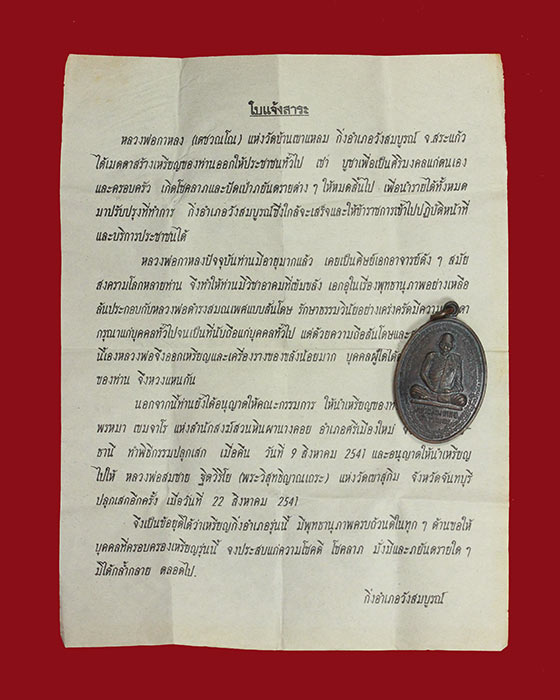 ใบแจ้งสาระ
หลวงพ่อกาหลง (เตชวณโณ) แห่งวัดบ้านเขาแหลม กิ่งอำเภอวังสมบูรณ์ จ.สระแก้ว
ได้เมตตาสร้างเหรียญของท่านออกให้ประชาชนทั่วไป เช่า บูชาเพื่อเป็นศิริมงคลแก่ตนเอง
และครอบครัว เกิดโชคลาภและปัดเป่าภยันตรายต่าง ๆ ให้หมดสิ้นไป เพื่อนำรายได้ทั้งหมด
มาปรับปรุงที่ทำการ กิ่งอำเภอวังสมบูรณ์ซึ่งใกล้จะเสร็จและให้ข้าราชการเข้าไปปฏิบัติหน้าที่
และบริการประชาชนได้
หลวงพ่อกาหลงปัจจุบันท่านมีอายุมากแล้ว เคยเป็นศิษย์เอกอาจารย์ดัง ๆ สมัย
สงครามโลกหลายท่าน จึงทำให้ท่านมีวิชาอาคมที่เข้มขลัง เอกอุในเรื่องพุทธานุภาพอย่างเหลือ
ล้นประกอบกับหลวงพ่อดำรงสมณเพศแบบสันโดษ รักษาธรรมวินัยอย่างเคร่งครัดมีความ
กรุณาแก่บุคคลทั่วไปจนเป็นที่นับถือแก่บุคคลทั่วไป แต่ด้วยความถือสันโดษและ
นี้เองหลวงพ่อจึงออกเหรียญและเครื่องรางของขลังน้อยมาก บุคคลผู้ใดได้
ของท่าน จึงหวงแหนกัน
นอกจากนี้ท่านยังได้อนุญาตให้คณะกรรมการ ให้นำเหรียญของ
พรหมา เขมจาโร แห่งสำนักสงฆ์สวนหินผานางคอย อำเภอศรีเมืองใหม่
ธานี ทำพิธีกรรมปลุกเสก เมื่อคืน วันที่ 9 สิงหาคม 2541 และอนุญาตให้นำเหรียญ
ไปให้ หลวงพ่อสมชาย ฐิตวิริโย (พระวิสุทธิญาณเถระ) แห่งวัดเขาสุกิม จังหวัดจันทบุรี
ปลุกเสกอีกครั้ง เมื่อวันที่ 22 สิงหาคม 2541
จึงเป็นข้อยุติได้ว่าเหรียญกิ่งอำเภอรุ่นนี้ มีพุทธานุภาพครบถ้วนดีในทุก ๆ ด้านขอให้
บุคคลที่ครอบครองเหรียญรุ่นนี้ จงประสบแก่ความโชคดี โชคลาภ มั่งมีและภยันตรายใด ๆ
มิได้กล้ำกลาย ตลอดไป.
กิ่งอำเภอวังสมบูรณ์